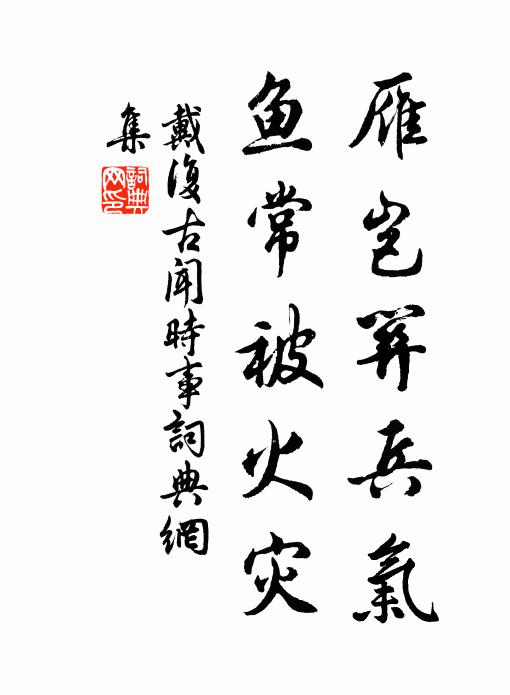 雁岂關兵氣
鱼常被火灾
戴復古聞時事詞典網
集
詞典
网印